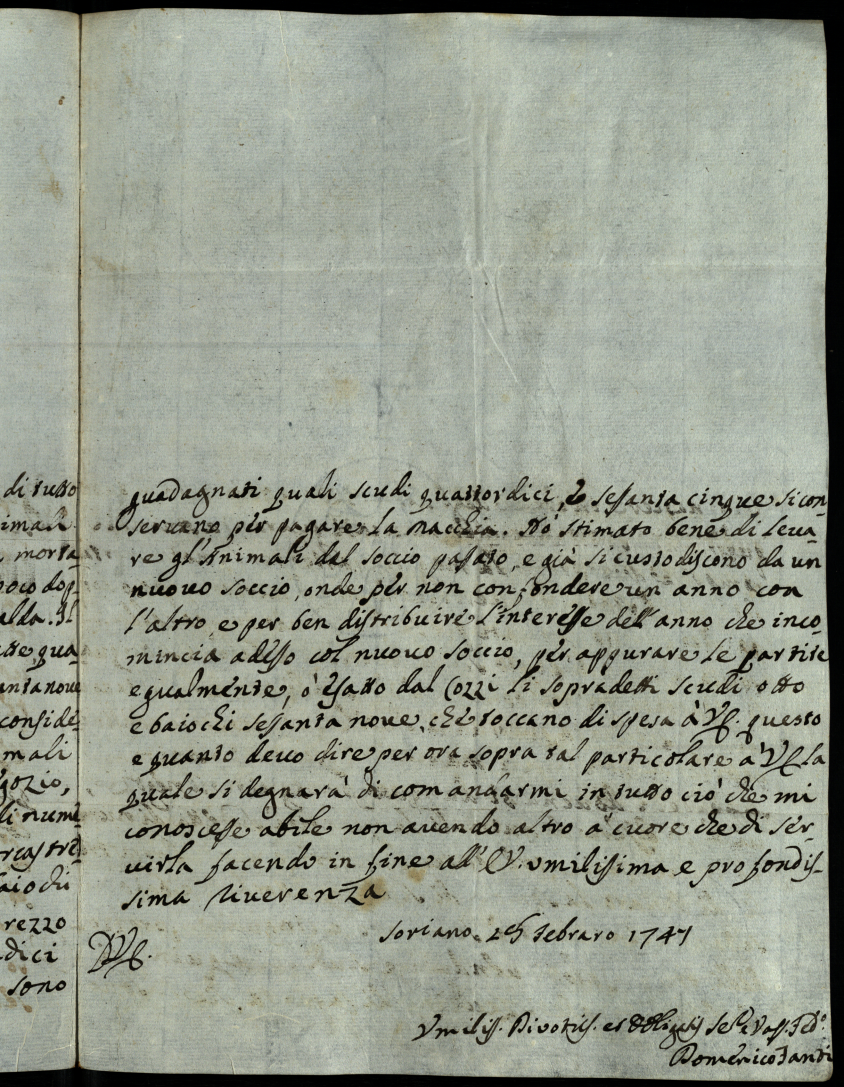 di tutto
imali
morta-
poco dop-
alda. Il
tte qua-
antanoue
conside-
mali
gozio,
li nume-
rcastri
aiochi
rezzo
dici
sono
guadagnati quali scudi quattordici, e sessanta cinque si con-
seruano per pagare la Macchia. Hò stimato bene di leua-
re gl'Animali dal soccio passato, e già si custodiscono da un
nuouo soccio, onde per non confondere un anno con
l'altro e per ben distribuire l'interesse dell'anno che inco-
mincia adesso col nuouo soccio, per appurare le partite
egualmente, ò esatto dal Cozzi li sopradetti scudi otto
e baiochi sessanta noue, che toccano di spesa à VS. questo
e quanto deuo dire per ora sopra tal particolare à VS la
quale si degnarà di comandarmi in tutto ciò che mi
conoscesse abile non auendo altro a cuore che di ser-
uirla facendo in fine all' VS. umilissima e profondis-
sima riuerenza
Soriano 25 Febraro 1747
D VS.
Vmiliss. Diuotiss. et Obligatis Se Vass. Fed.
Domenico Fanti